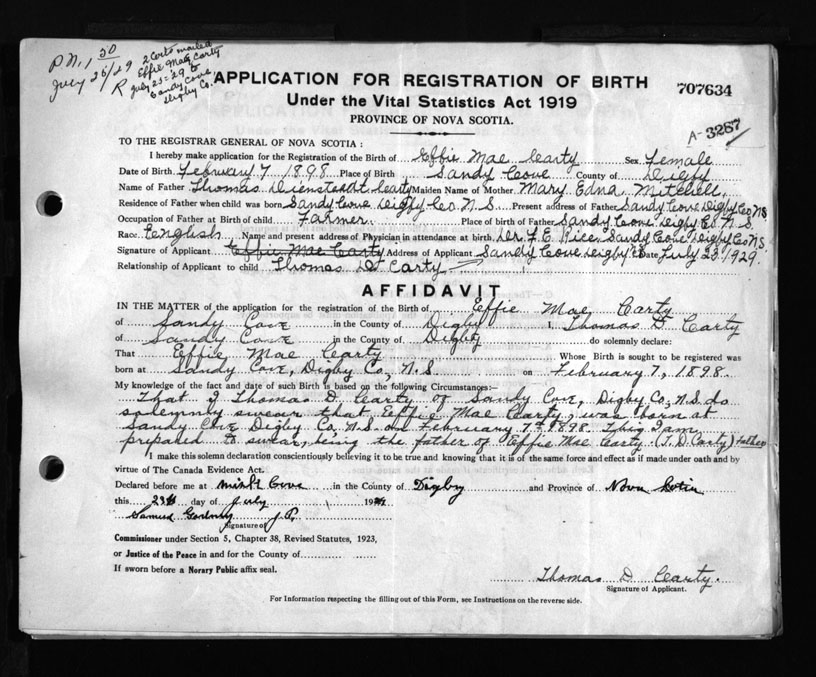 P.N. 1 50
July 26/29
R
2 Certs mailed
Effie Mae Carty
July 25-29 to
Sandy Cove
Digby Co.
APPLICATION FOR REGISTRATION OF BIRTH
707634
Under the Vital Statistics Act 1919
PROVINCE OF NOVA SCOTIA.
A-3287
TO THE REGISTRAR GENERAL OF NOVA SCOTIA:
I hereby make application for the Registration of the Birth of Effie Mae Carty Sex Female
Date of Birth February 7 1898 Place of Birth Sandy Cove County of Digby
Name of Father Thomas Carty Maiden Name of Mother Mary Edna Mitchell
Residence of Father when child was born Sandy Cove Digby Co N.S. Present address of Father Sandy Cove Digby Co NS
Occupation of Father at Birth of child Farmer Place of birth of Father Sandy Cove Digby Co N.S.
Race English Name and present address of Physician in attendance at birth Dr F. E. Rice Sandy Cove Digby Co NS
Signature of Applicant Effie Mae Carty Address of Applicant Sandy Cove Digby Co Date July 23 1929.
Relationship of Applicant to child Thomas D Carty
AFFIDAVIT
IN THE MATTER of the application for the registration of the Birth of Effie Mae Carty
of Sandy Cove in the County of Digby I, Thomas D. Carty
of Sandy Cove in the County of Digby do solemnly declare:
That Effie Mae Carty Whose Birth is sought to be registered was
born at Sandy Cove, Digby Co, N.S. on February 7, 1898.
My knowledge of the fact and date of such Birth is based on the following Circumstances:—
That I Thomas D. Carty of Sandy Cove, Digby Co, N.S. do
solemnly swear that Effie Mae Carty, was born at
Sandy Cove Digby Co, N.S. on February 7th 1898. This I am
prepared to swear, being the father of Effie Mae Carty. (T. D. Carty) father
I make this solemn declaration conscientiously believing it to be true and knowing that it is of the same force and effect as if made under oath and by
virtue of The Canada Evidence Act.
Declared before me at Mink Cove in the County of Digby and Province of Nova Scotia
this 23rd day of July 1929
Samuel J.P.
Signature of
Commissioner under Section 5, Chapter 38, Revised Statutes, 1923,
or Justice of the Peace in and for the County of
If sworn before a Norary Public affix seal.
Thomas D. Carty.
Signature of Applicant.
For Information respecting the filling out of this Form, see Instructions on the reverse side.